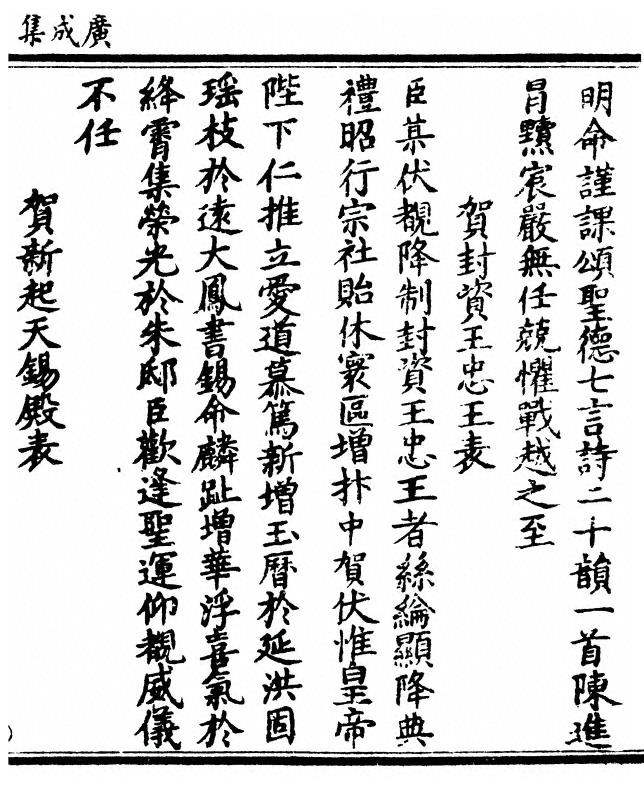 廣成集
明命謹課頌聖德七言詩二十韻一首陳進
冐黷宸嚴無任兢懼戰越之至
賀封資王忠王表
臣某伏覩降制封資王忠王者絲綸顯降典
禮昭行宗社貽休寰區增抃中賀伏惟皇帝
陛下仁推立愛道慕篤新增玉曆於延洪固
瑶枝於遠大鳳書錫命麟趾增華浮喜氣於
絳霄集榮光於朱邸臣歡逢聖運仰覩威儀
不任
賀新起天錫殿表